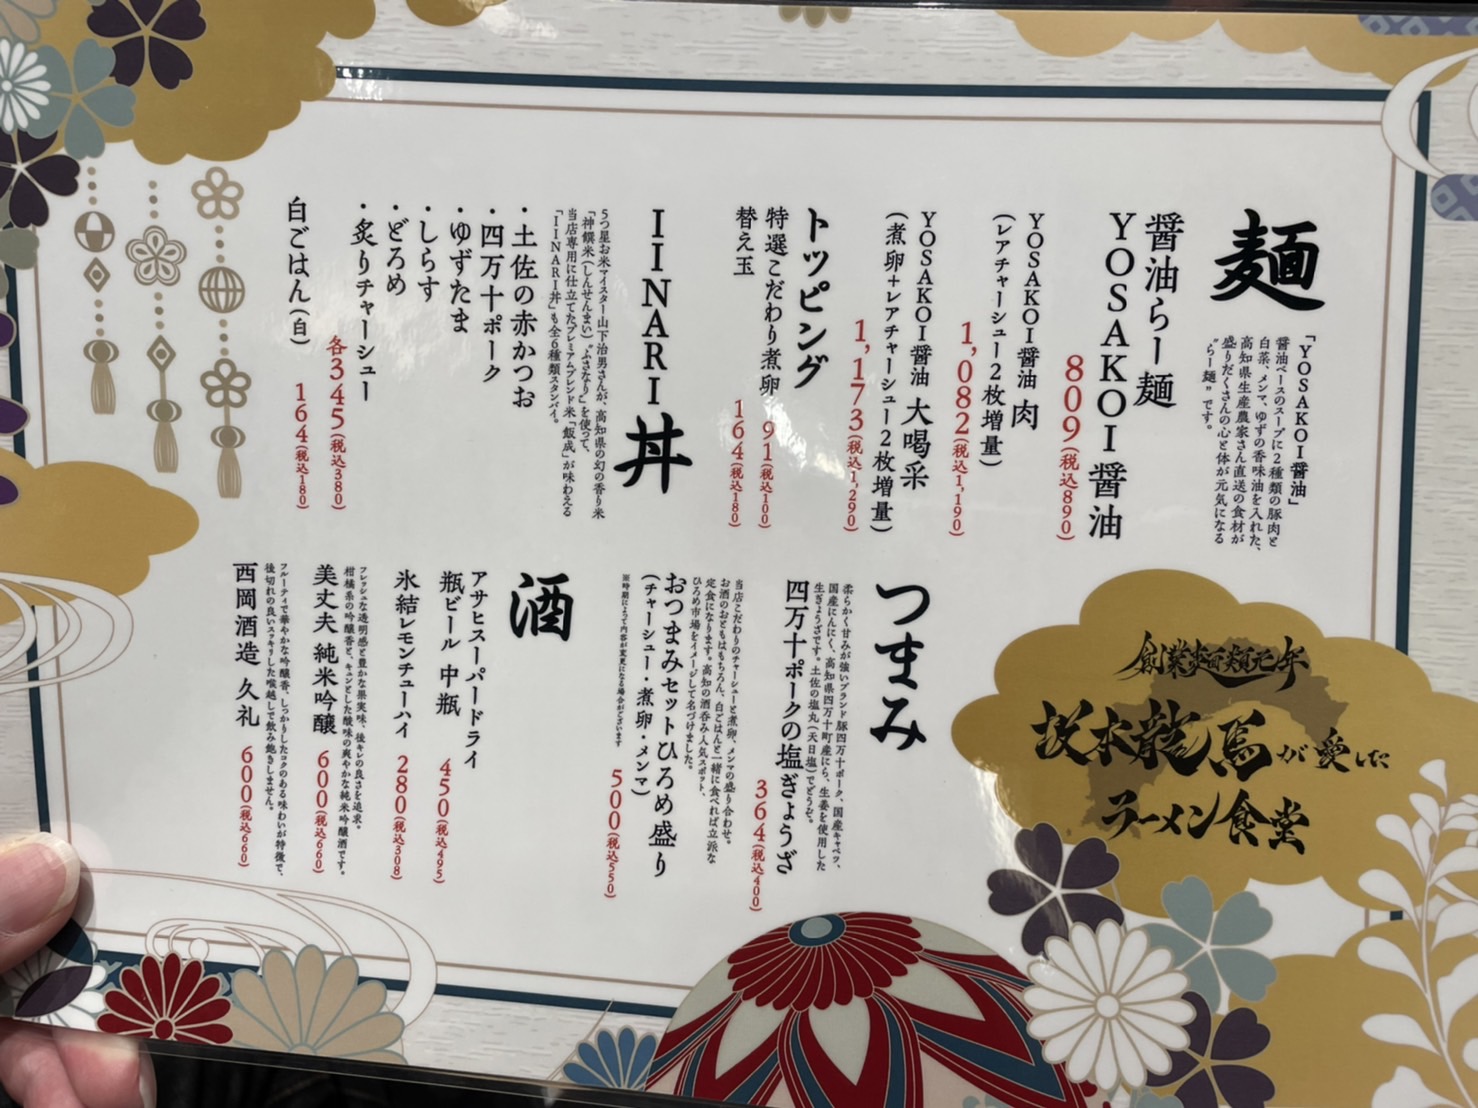 麺
「YOSAKOI醤油」
醤油ベースのスープに2種類の豚肉と
白菜、メンマ、ゆずの香味油を入れた、
高知県生産農家さん直送の食材が
盛りだくさんの心と体が元気になる
"らー麺"です。
醤油らー麺
YOSAKOI醤油
809(税込890)
YOSAKOI醤油 肉
(レアチャーシュー2枚増量)
1,082(税込1,190)
YOSAKOI醤油 大喝采
(煮卵+レアチャーシュー2枚増量)
1,173(税込1,290)
トッピング
特選こだわり煮卵 91(税込100)
替え玉 164(税込180)
IINARI丼
5つ星お米マイスター山下治男さんが、高知県の幻の香り米
「神饌米(しんせんまい)"ふさなり"」を使って、
当店専用に仕立てたプレミアムブレンド米「飯成」が味わえる
「IINARI丼」も全6種類スタンバイ。
・土佐の赤かつお
・四万十ポーク
・ゆずたま
・しらす
・どろめ
・炙りチャーシュー
各345(税込380)
白ごはん(白) 164(税込180)
つまみ
柔らかく甘みが強いブランド豚四万十ポーク、国産キャベツ、
国産にんにく、高知県四万十町産にら、生姜を使用した
生ぎょうざです。土佐の塩丸(天日塩)でどうぞ。
四万十ポークの塩ぎょうざ
364(税込400)
当店こだわりのチャーシューと煮卵、メンマの盛り合わせ。
お酒のおともはもちろん、白ごはんと一緒に食べれば立派な
定食になります。高知の酒呑み人気スポット、
ひろめ市場をイメージして名づけました。
おつまみセットひろめ盛り
(チャーシュー・煮卵・メンマ)
500(税込550)
※時期によって内容が変更になる場合がございます
酒
アサヒスーパードライ
瓶ビール 中瓶 450(税込495)
氷結レモンチューハイ 280(税込308)
フレッシュな透明感と豊かな果実味、後キレの良さを追求。
柑橘系の吟醸香と、キュンとした酸味の爽やかな純米吟醸酒です。
美丈夫 純米吟醸 600(税込660)
フルーティで華やかな吟醸香、しっかりしたコクのある味わいが特徴で、
後切れの良いスッキリした喉越しで飲み飽きしません。
西岡酒造 久礼 600(税込660)
創業麺類元年
坂本龍馬が愛した
ラーメン食堂